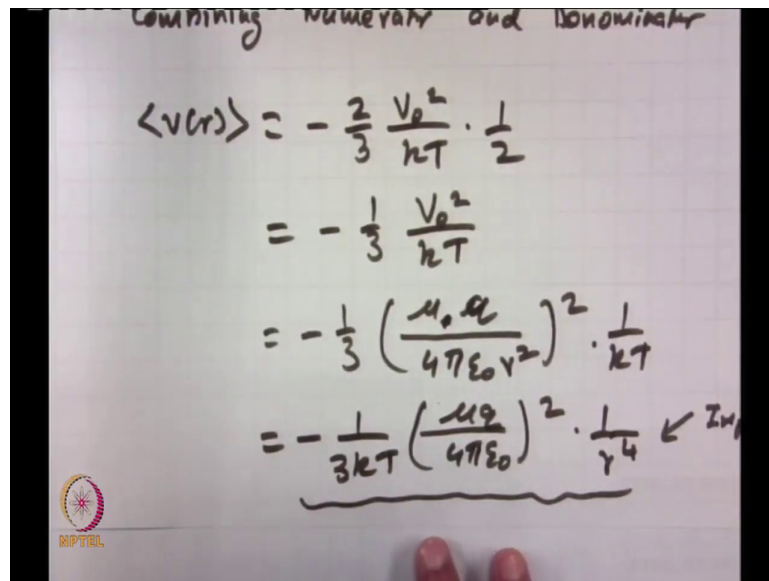 Combining Numerator and Denominator
<v(r)> = - 2/3 V₀²/kT · 1/2
= - 1/3 V₀²/kT
= - 1/3 (μ · q / 4πε₀r²)² · 1/kT
= - 1/3kT (μq / 4πε₀)² · 1/r⁴ ↙
NPTEL